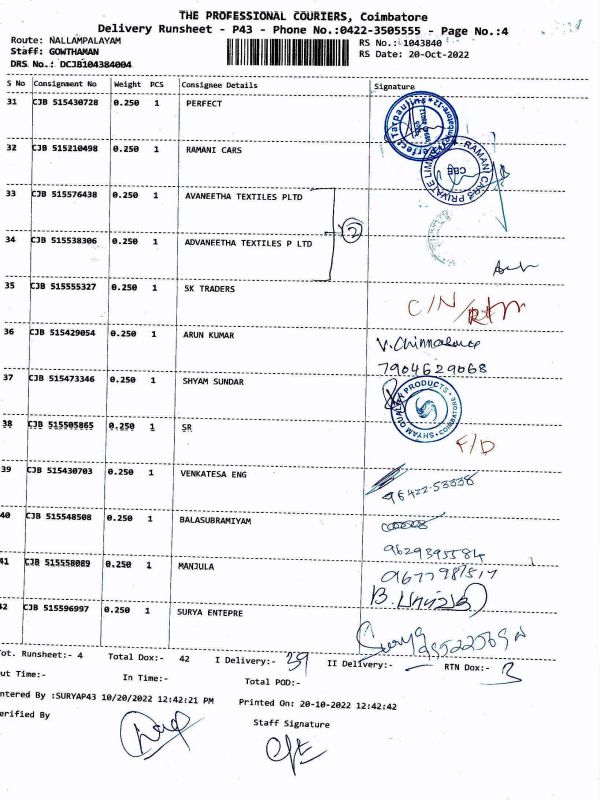 THE PROFESSIONAL COURIERS, Coimbatore
Delivery Runsheet - P43 - Phone No.:0422-3505555 - Page No.:4
Route: NALLAMPALAYAM
RS No.: 1043840
Staff: GOWTHAMAN
RS Date: 20-Oct-2022
DRS No.: DCJB104384004
S No Consignment No Weight PCS Consignee Details Signature
31 CJB 515430728 0.250 1 PERFECT
32 CJB 515210498 0.250 1 RAMANI CARS
RAMANI CARS PRIVATE LIMITED
CBE
33 CJB 515576438 0.250 1 AVANEETHA TEXTILES PLTD
2
34 CJB 515538306 0.250 1 ADVANEETHA TEXTILES P LTD
35 CJB 515555327 0.250 1 SK TRADERS
C/N/Rtn
36 CJB 515429054 0.250 1 ARUN KUMAR
7904629068
37 CJB 515473346 0.250 1 SHYAM SUNDAR
SHYAM QUALITY PRODUCTS * COIMBATORE
38 CJB 515505865 0.250 1 SR
F/D
39 CJB 515430703 0.250 1 VENKATESA ENG
96422-53338
40 CJB 515548508 0.250 1 BALASUBRAMIYAM
9629395584
41 CJB 515558089 0.250 1 MANJULA
42 CJB 515596997 0.250 1 SURYA ENTEPRE
Surya
Tot. Runsheet:- 4 Total Dox:- 42 I Delivery:- 39 II Delivery:- RTN Dox:- 3
Out Time:- In Time:- Total POD:-
Entered By :SURYAP43 10/20/2022 12:42:21 PM Printed On: 20-10-2022 12:42:42
Verified By Staff Signature